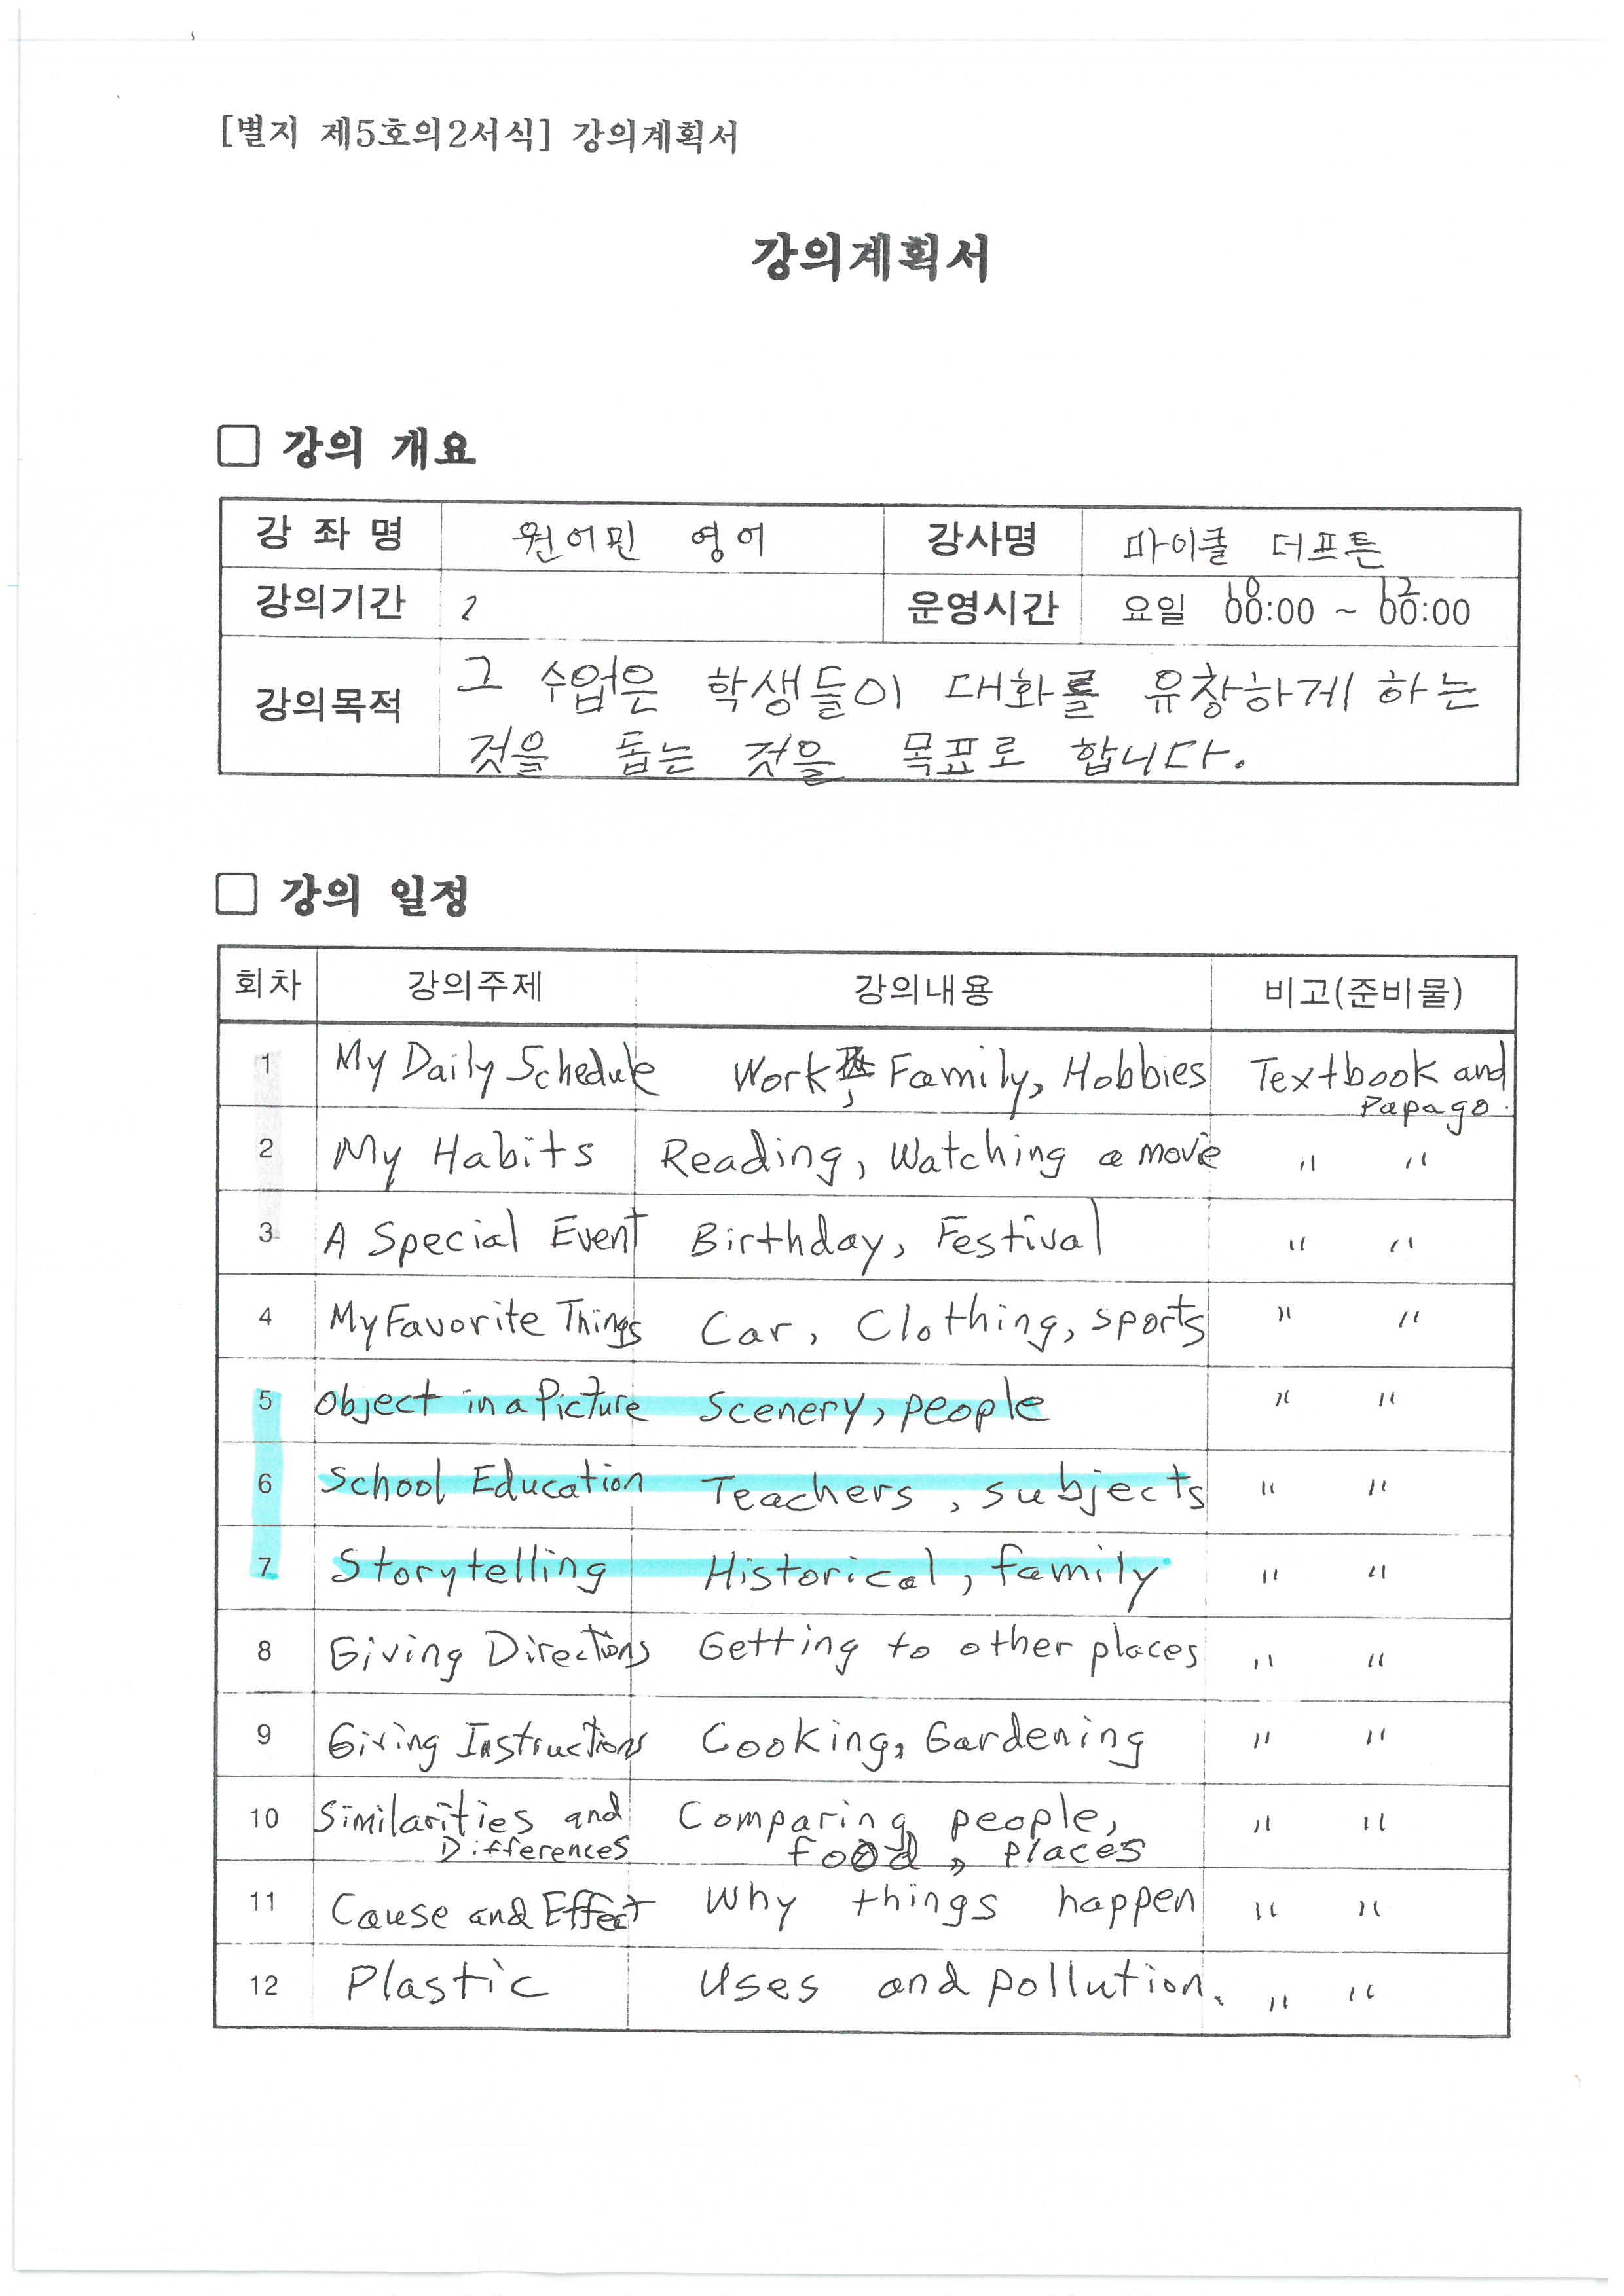 [별지 제5호의2서식] 강의계획서
강의계획서
□ 강의 개요
강 좌 명 원어민 영어 강사명 마이클 더프튼
강의기간 2 운영시간 요일 10:00 ~ 12:00
강의목적 그 수업은 학생들이 대화를 유창하게 하는
것을 돕는 것을 목표로 합니다.
□ 강의 일정
회차 강의주제 강의내용 비고(준비물)
1 My Daily Schedule Work, Family, Hobbies Textbook and
Papago.
2 My Habits Reading, Watching a movie " "
3 A Special Event Birthday, Festival " "
4 My Favorite Things Car, Clothing, sports " "
5 Object in a Picture Scenery, people " "
6 School Education Teachers, subjects " "
7 Storytelling Historical, family " "
8 Giving Directions Getting to other places " "
9 Giving Instructions Cooking, Gardening " "
10 Similarities and Comparing people, " "
Differences food, places
11 Cause and Effect Why things happen " "
12 Plastic Uses and pollution. " "